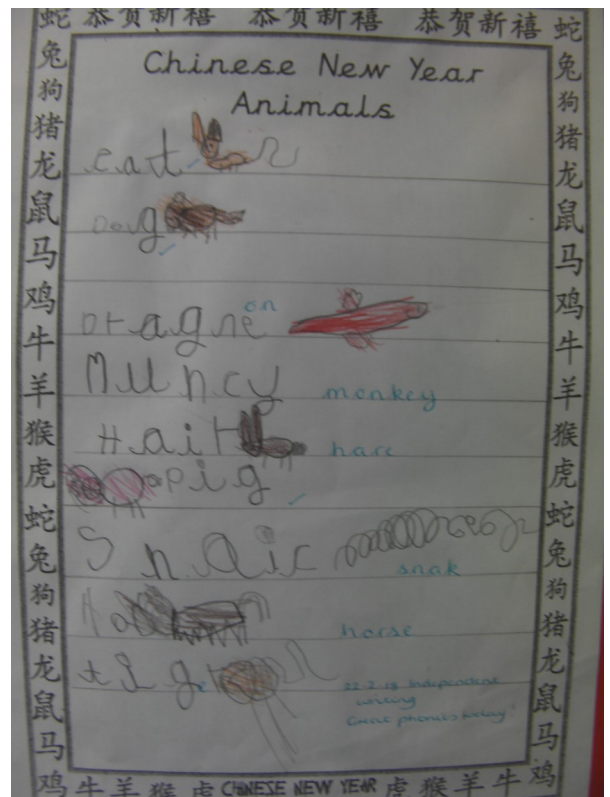 蛇 恭贺新禧 恭贺新禧 恭贺新禧 蛇
兔
狗
猪
龙
鼠
马
鸡
牛
羊
猴
虎
蛇
兔
狗
猪
龙
鼠
马
鸡
Chinese New Year
Animals
cat
Dog
Dragne on
Muncy monkey
Hair hare
pig
Snaic snak
horse
tiger
22.2.18 Independent
writing
Great phonics today!
兔
狗
猪
龙
鼠
马
鸡
牛
羊
猴
虎
蛇
兔
狗
猪
龙
鼠
马
鸡
牛 羊 猴 虎 CHINESE NEW YEAR 虎 猴 羊 牛